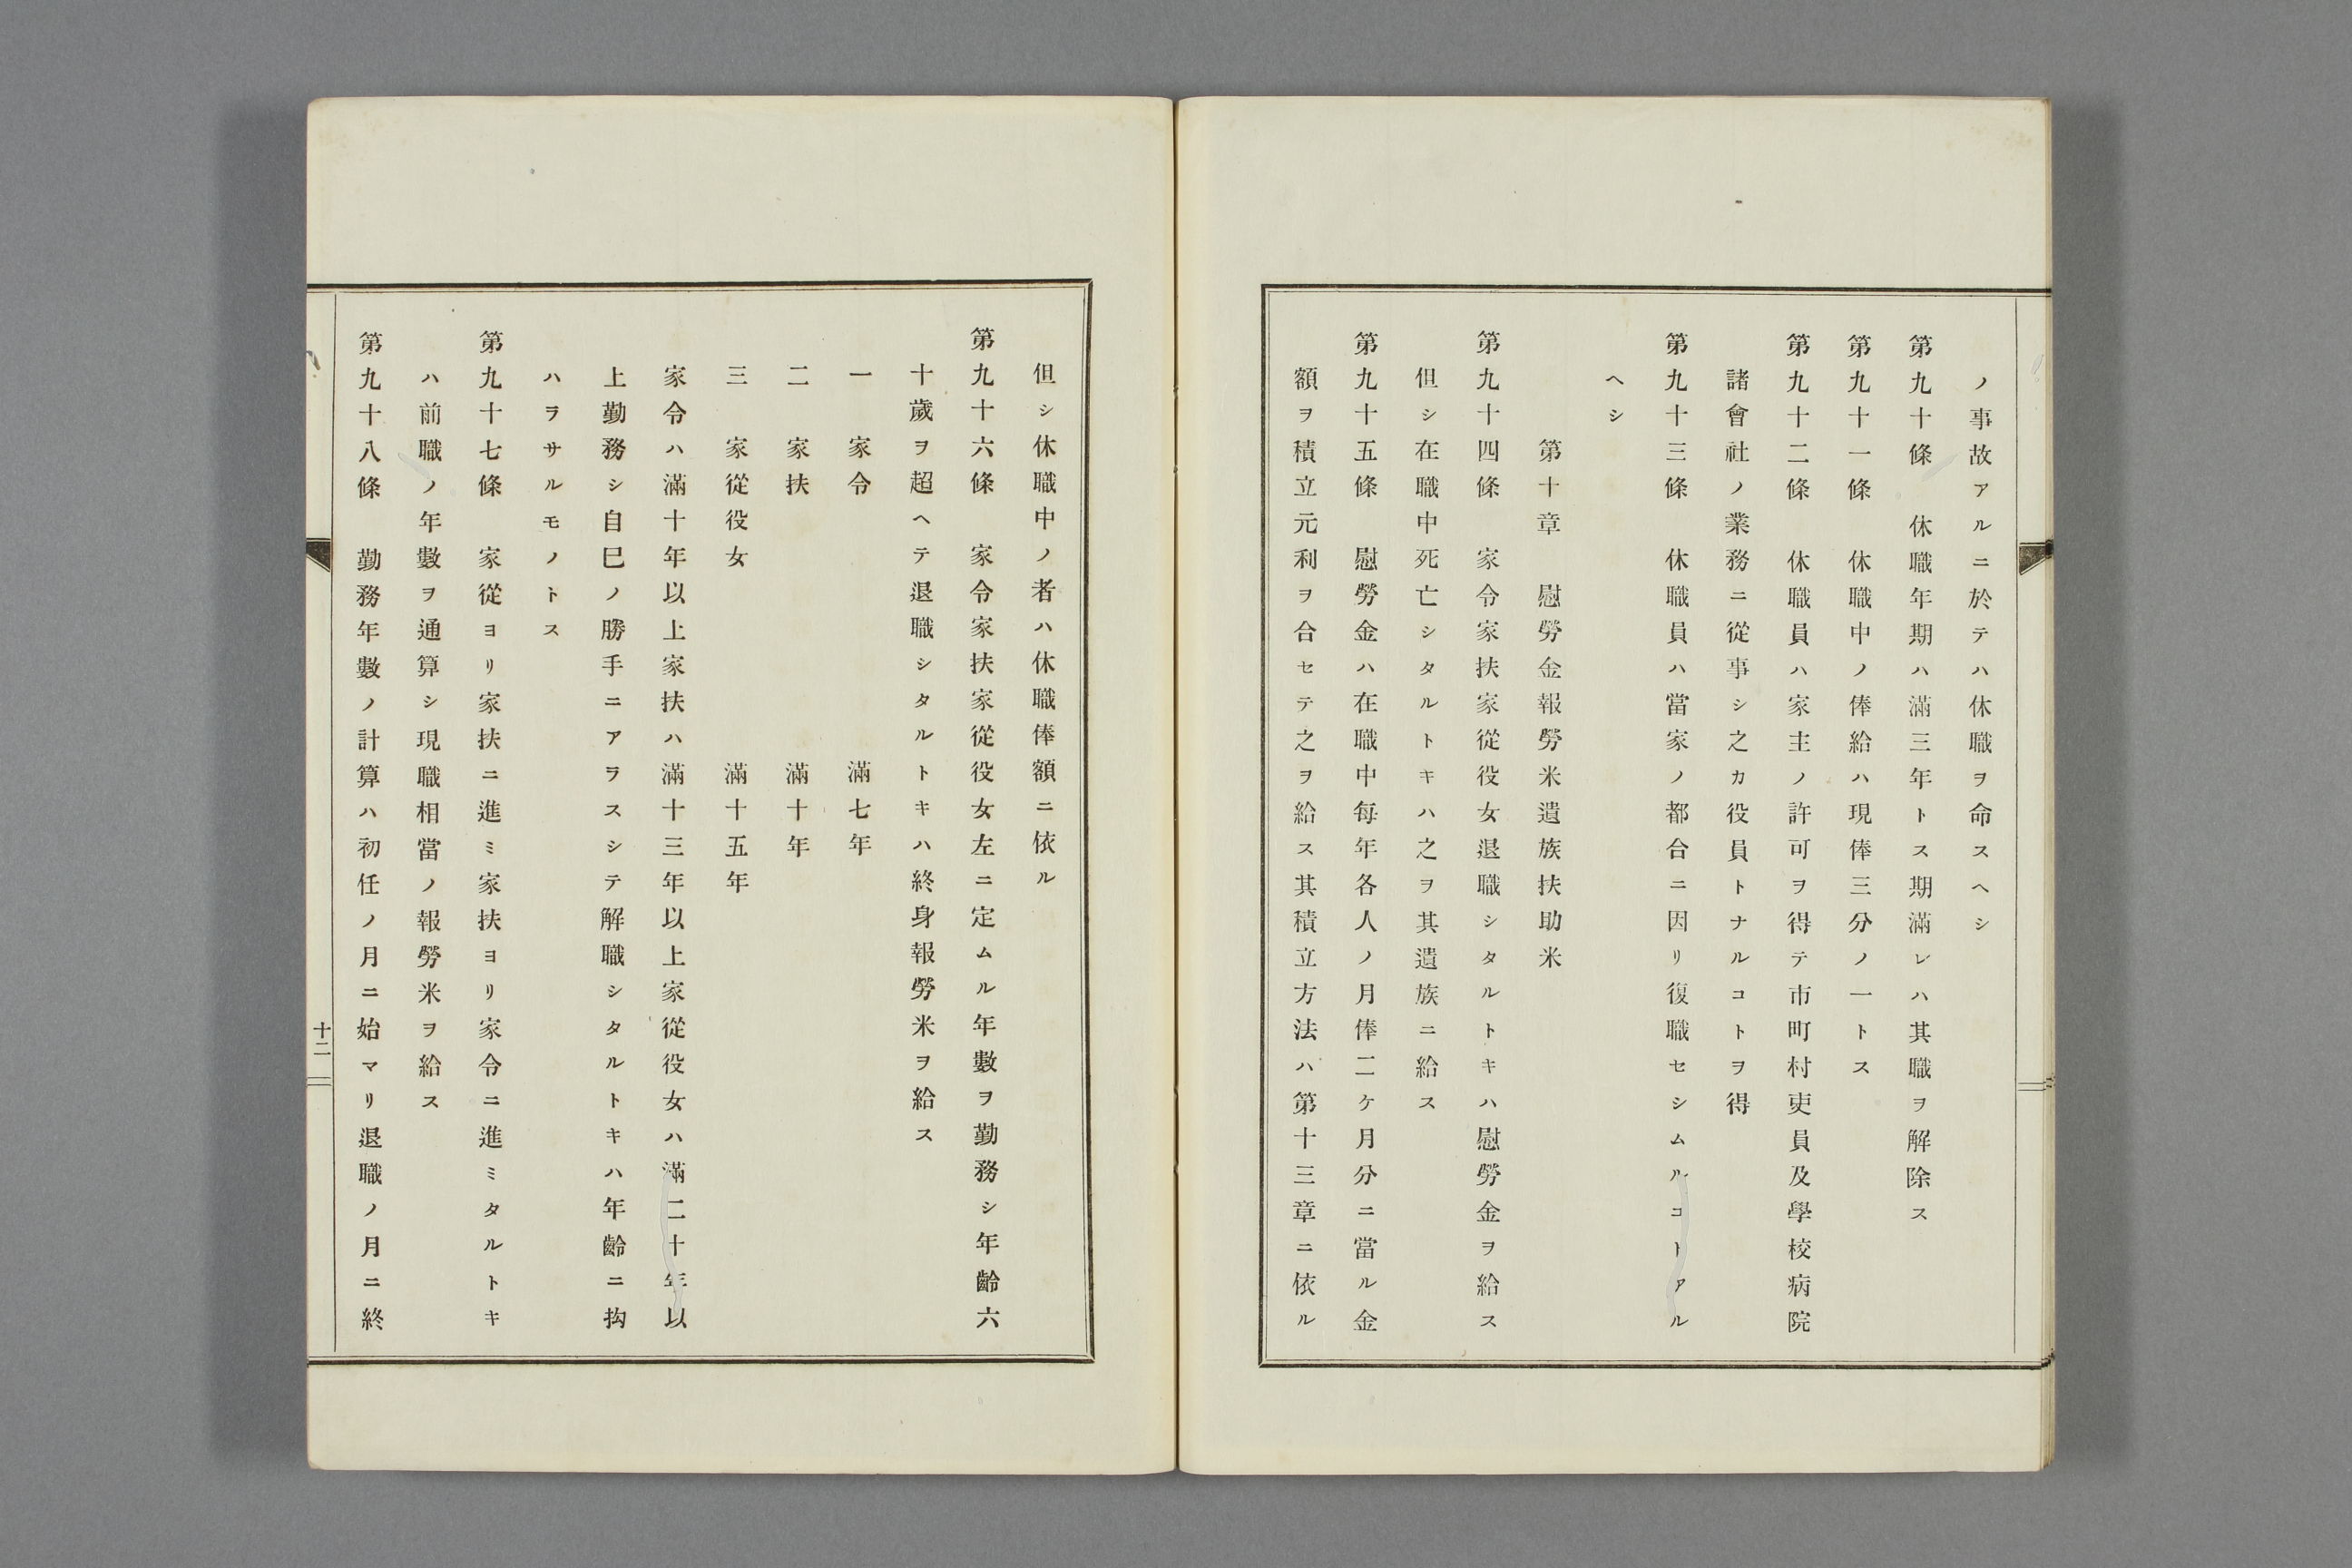 ノ事故アルニ於テハ休職ヲ命スヘシ
第九十條　休職年期ハ滿三年トス期滿レハ其職ヲ解除ス
第九十一條　休職中ノ俸給ハ現俸三分ノ一トス
第九十二條　休職員ハ家主ノ許可ヲ得テ市町村吏員及學校病院
諸會社ノ業務ニ從事シ之カ役員トナルコトヲ得
第九十三條　休職員ハ當家ノ都合ニ因リ復職セシムルコトアル
ヘシ
第十章　慰勞金報勞米遺族扶助米
第九十四條　家令家扶家從役女退職シタルトキハ慰勞金ヲ給ス
但シ在職中死亡シタルトキハ之ヲ其遺族ニ給ス
第九十五條　慰勞金ハ在職中每年各人ノ月俸二ケ月分ニ當ル金
額ヲ積立元利ヲ合セテ之ヲ給ス其積立方法ハ第十三章ニ依ル
但シ休職中ノ者ハ休職俸額ニ依ル
第九十六條　家令家扶家從役女左ニ定ムル年數ヲ勤務シ年齡六
十歲ヲ超ヘテ退職シタルトキハ終身報勞米ヲ給ス
一　家令　滿七年
二　家扶　滿十年
三　家從役女　滿十五年
家令ハ滿十年以上家扶ハ滿十三年以上家從役女ハ滿二十年以
上勤務シ自巳ノ勝手ニアラスシテ解職シタルトキハ年齡ニ拘
ハラサルモノトス
第九十七條　家從ヨリ家扶ニ進ミ家扶ヨリ家令ニ進ミタルトキ
ハ前職ノ年數ヲ通算シ現職相當ノ報勞米ヲ給ス
第九十八條　勤務年數ノ計算ハ初任ノ月ニ始マリ退職ノ月ニ終
十二